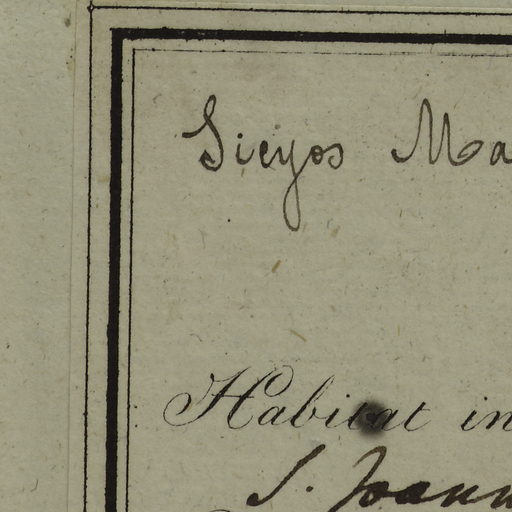 Sicyos Ma
Habitat in
S. Joann